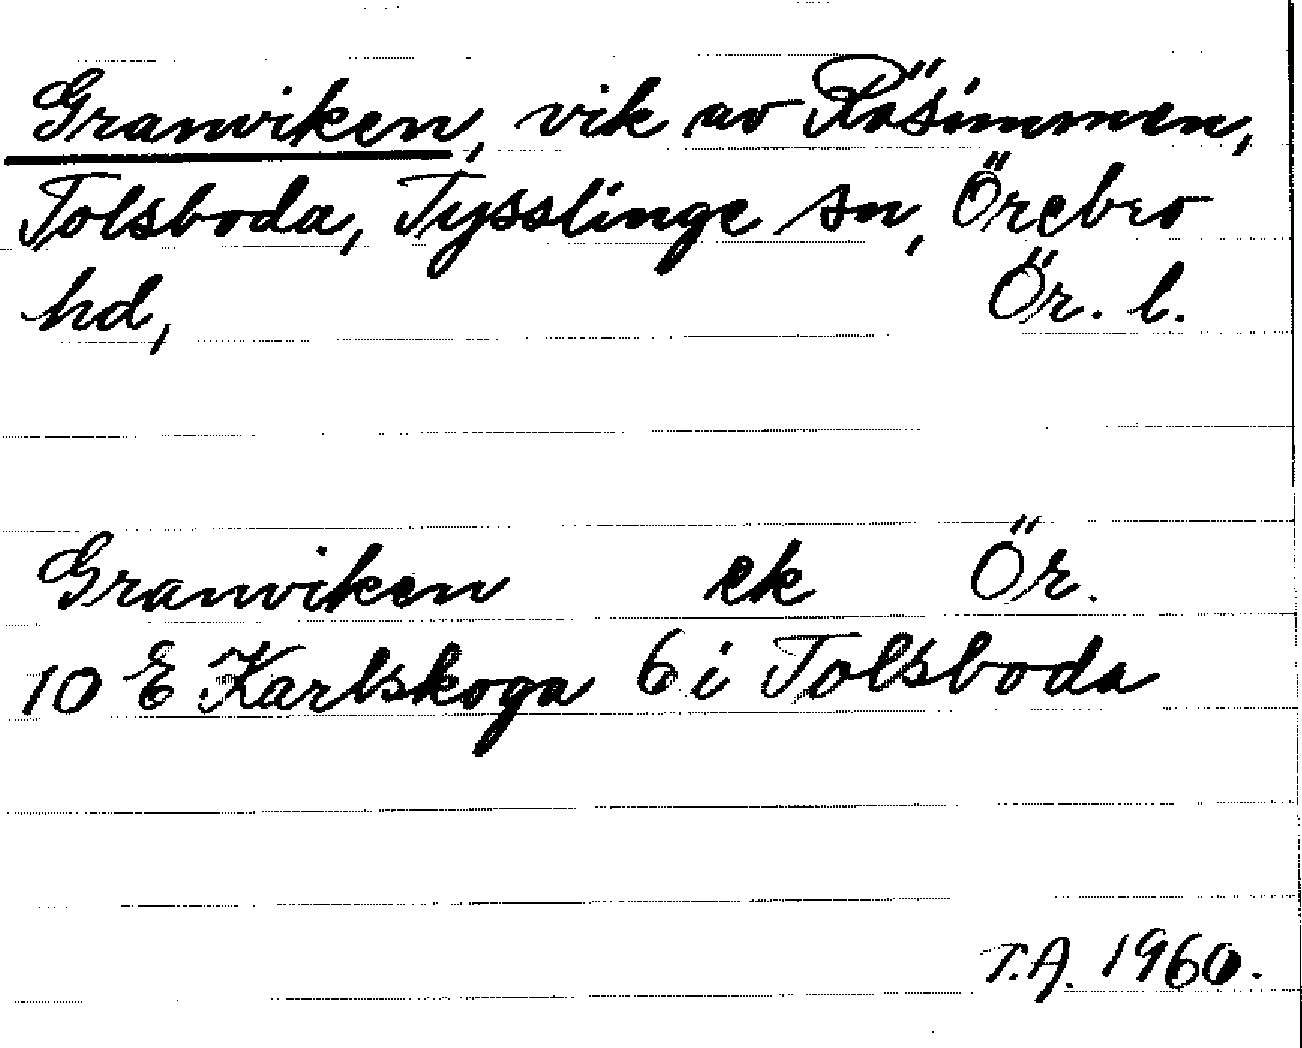 Granviken, vik av Rösimmen,
Tolsboda, Tysslinge sn, Örebro
hd, Ör. l.
Granviken ek Ör.
10 E Karlskoga 6 i Tolsboda
T.A. 1960.